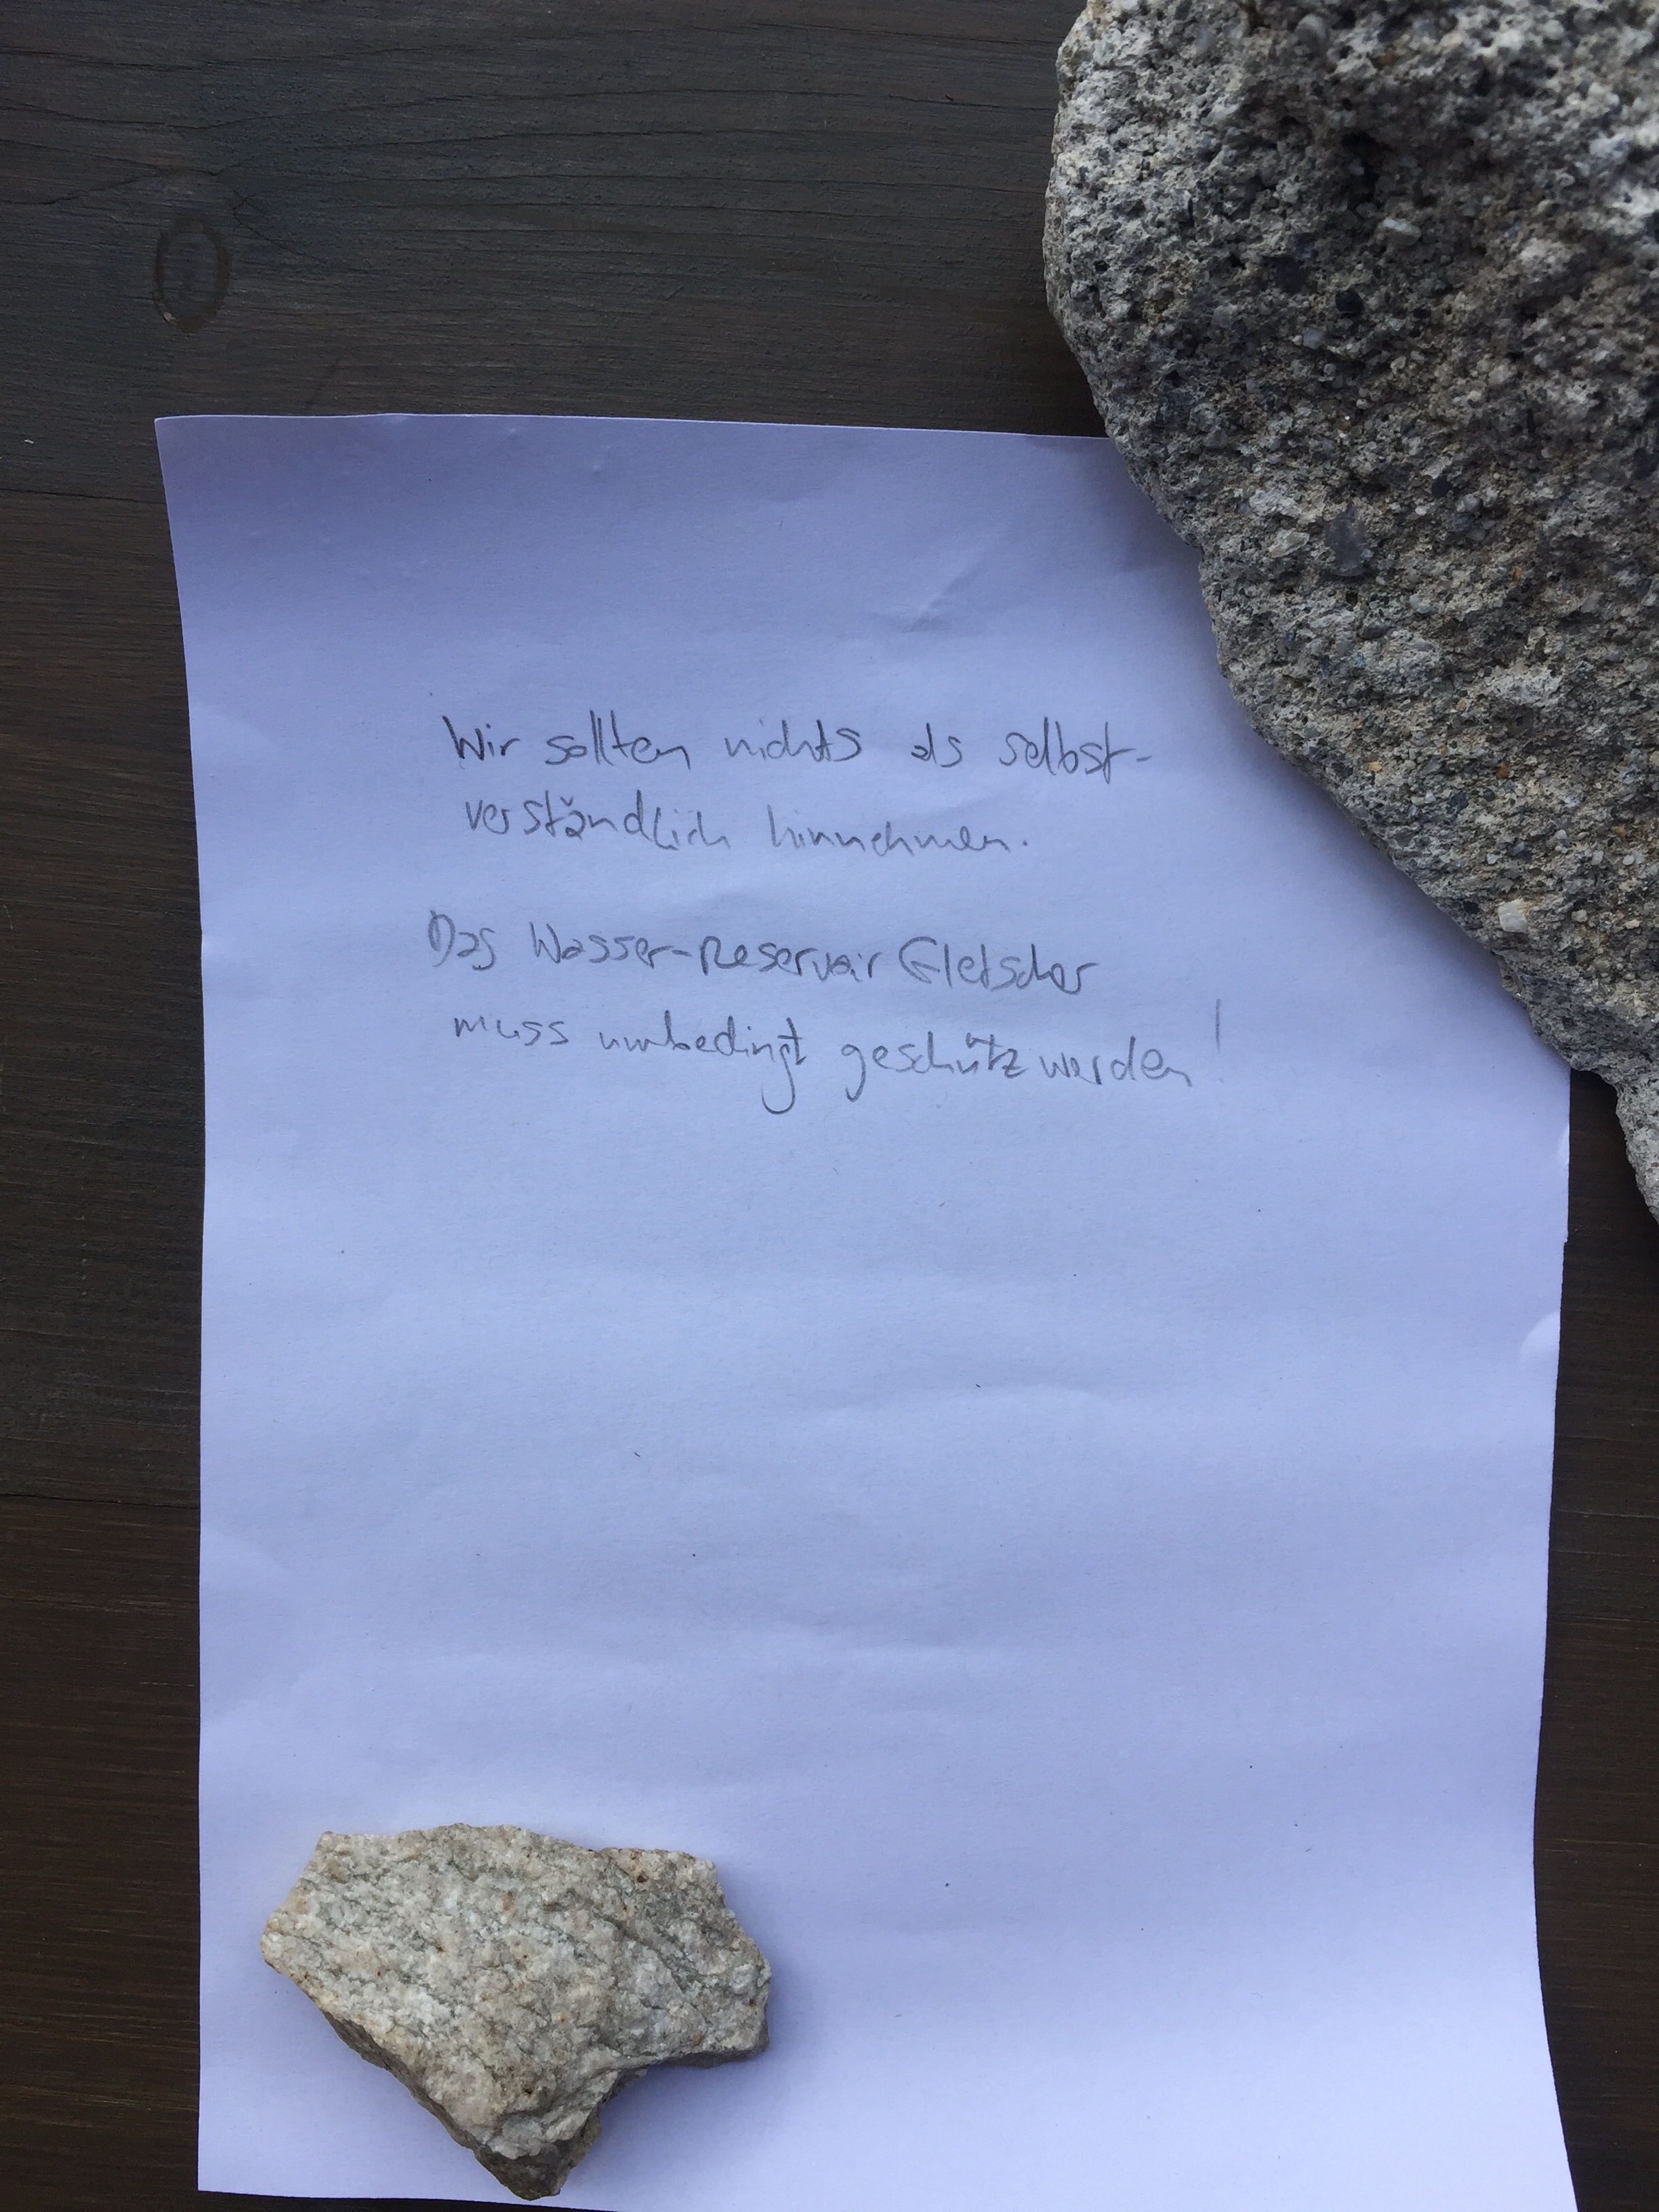 Wir sollten nichts als selbst-
verständlich hinnehmen.
Das Wasser-Reservoir Gletscher
muss unbedingt geschütz werden!